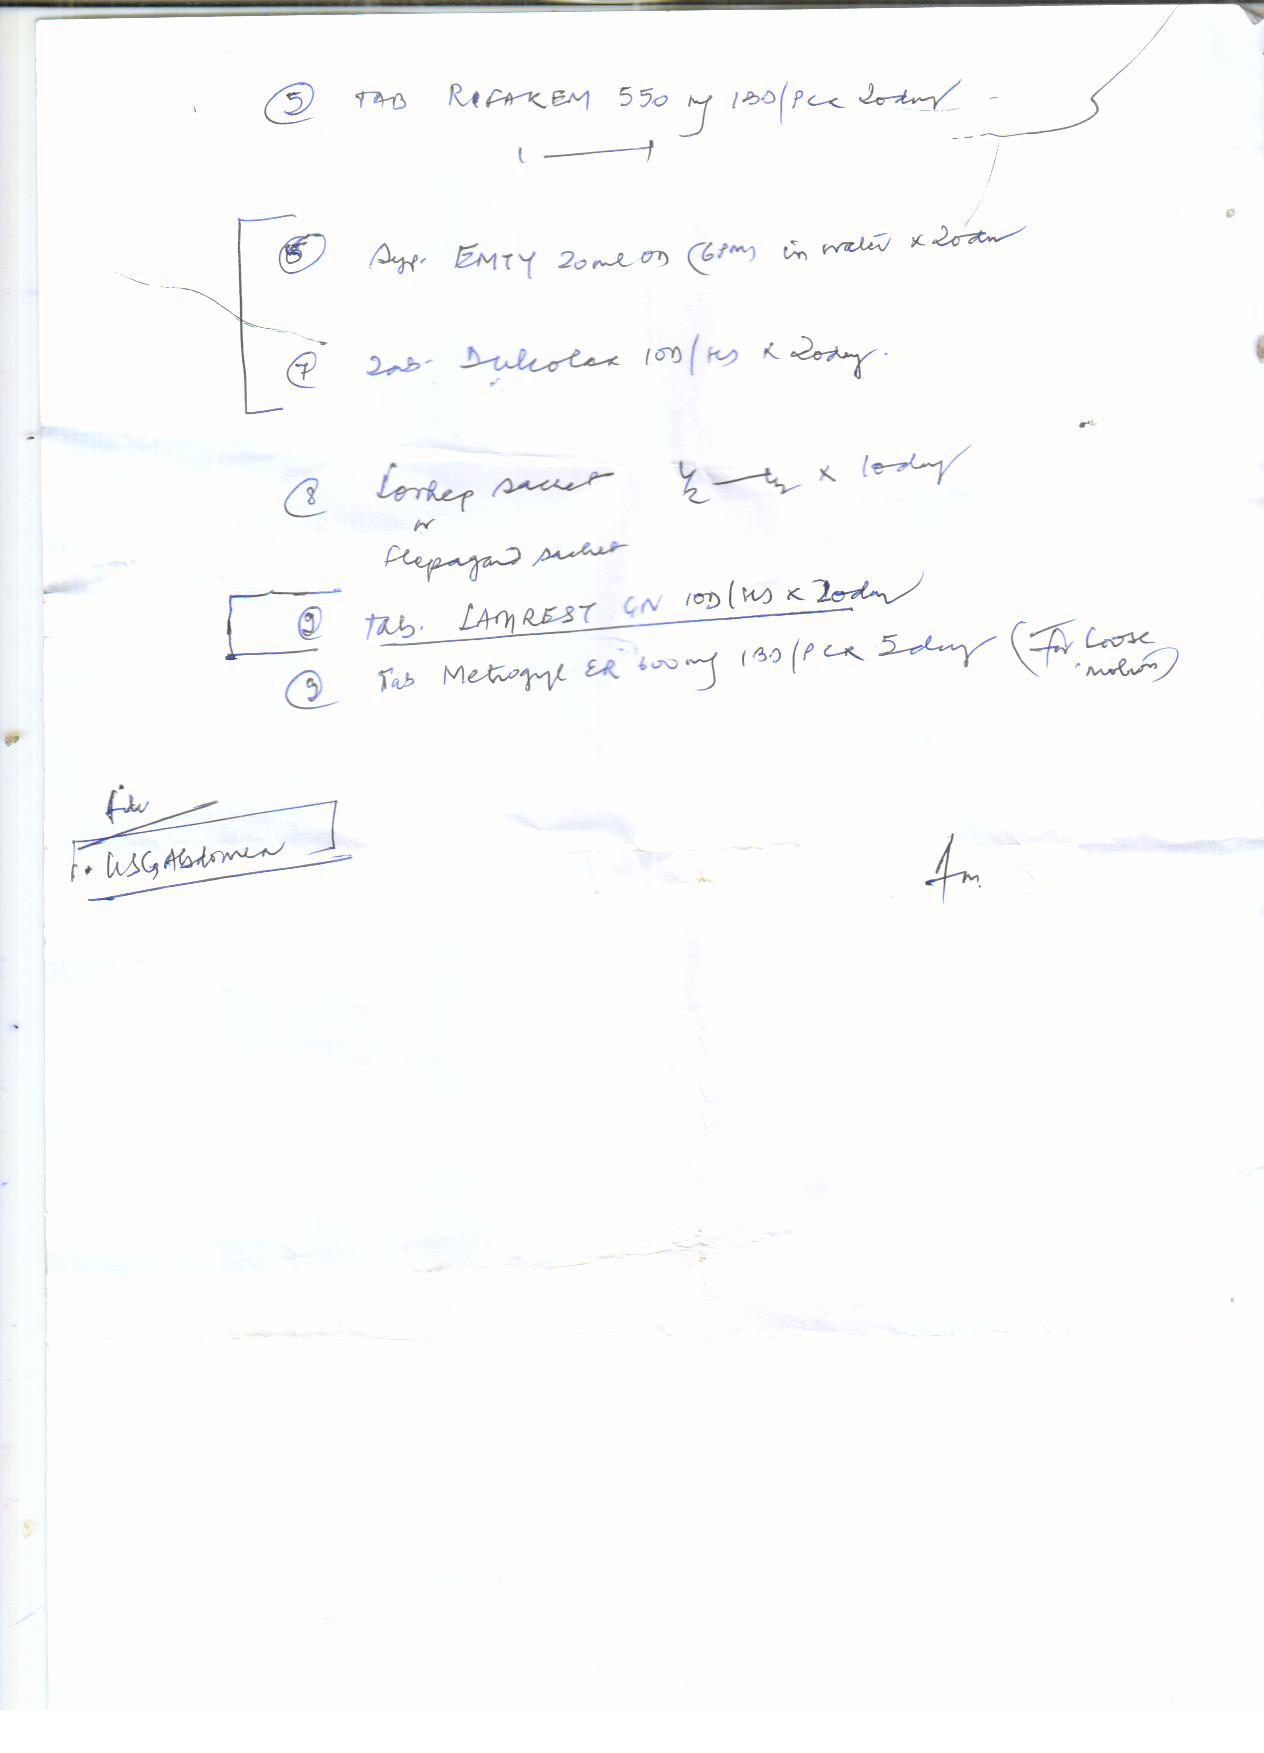 5 TAB RIFAKEM 550 mg 1BD/PC x 20day
1 — 1
6 Syp. EMTY 20ml OD (6PM) in water x 20day
7 Tab. Dulcolax 1OD/HS x 20day.
8 Lorhep sachet ½ — ½ x 10day
or
Hepagard sachet
9 Tab. LAMREST GN 1OD/HS x 20day
9 Tab Metrogyl ER 600mg 1BD/PC x 5day (For Loose
motion)
1. USG Abdomen